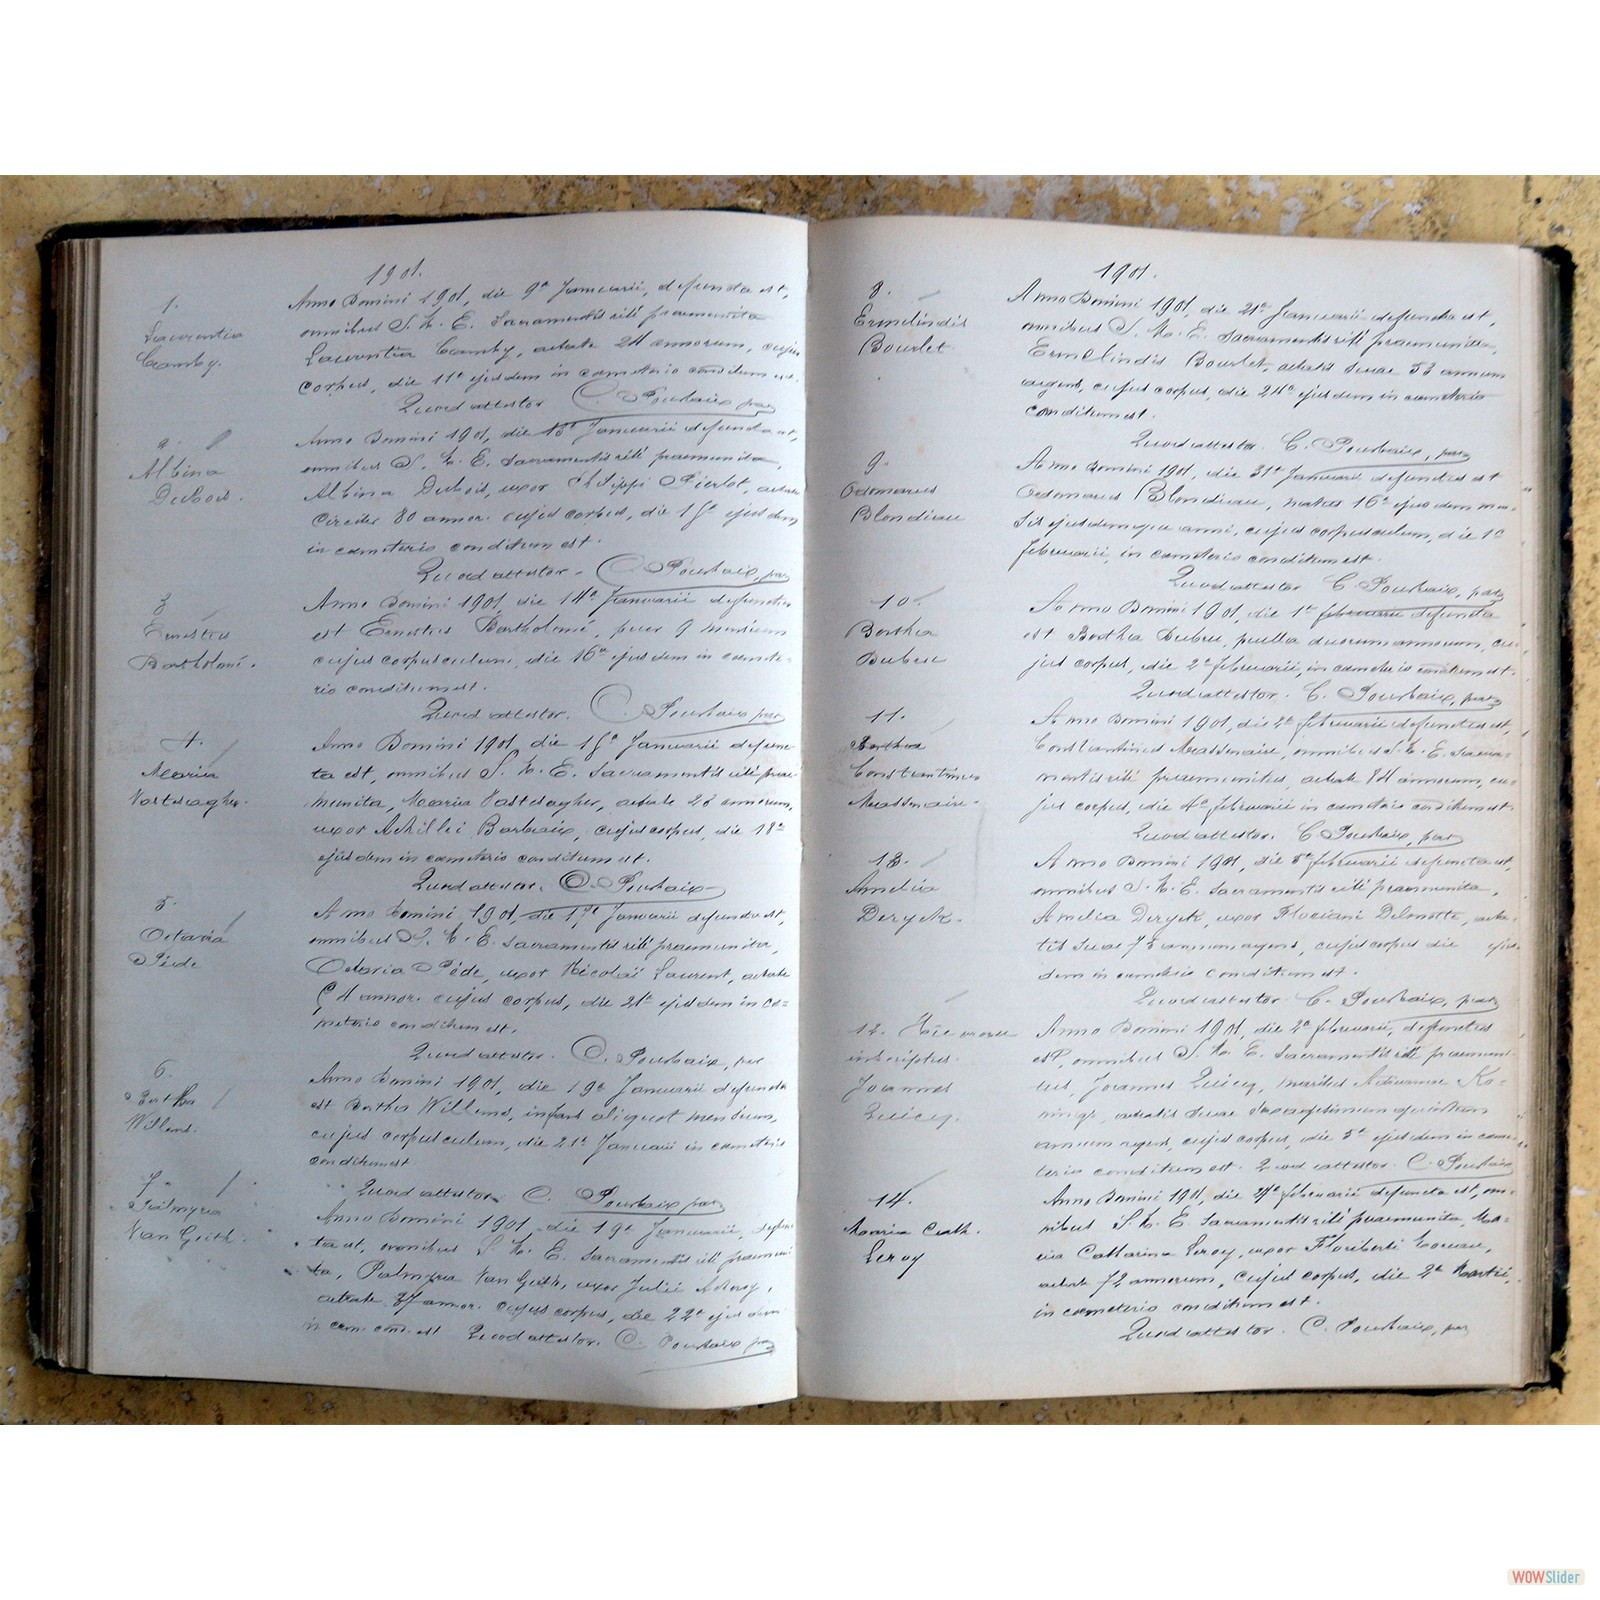 1901.
1.
Laurentia
Camby.
Anno Domini 1901, die 9a Januarii, defuncta est,
omnibus S. M. E. Sacramentis rite praemunita
Laurentia Camby, aetate 24 annorum, cujus
corpus, die 11a ejusdem in cemeterio conditum est.
Quod attestor C. Pourbaix par
2.
Albina
Dubois.
Anno Domini 1901, die 13a Januarii defuncta est,
omnibus S. M. E. Sacramentis rite praemunita,
Albina Dubois, uxor Philippi Pierlot, aetate
circiter 80 annor. cujus corpus, die 15a ejusdem
in cemeterio conditum est.
Quod attestor - C. Pourbaix, par
3
Ernestus
Bartholomé.
Anno Domini 1901, die 14a Januarii defunctus
est Ernestus Bartholomé, puer 9 mensium
cujus corpusculum, die 16a ejusdem in cemete-
rio conditum est.
Quod attestor. C. Pourbaix par
4.
Maria
Vastesagher.
Anno Domini 1901, die 15a Januarii defunc-
ta est, omnibus S. M. E. Sacramentis rite prae-
munita, Maria Vastesagher, aetate 23 annorum,
uxor Achillei Barbaix, cujus corpus, die 18a
ejusdem in cemeterio conditum est.
Quod attestor. C. Pourbaix
5.
Octavia
Pède
Anno Domini 1901, die 17a Januarii defuncta est,
omnibus S. M. E. Sacramentis rite praemunita,
Octavia Pède, uxor Nicolaï Laurent, aetate
annor. cujus corpus, die 21a ejusdem in ce-
meterio conditum est.
Quod attestor. C. Pourbaix, par
6.
Bertha
Willems.
Anno Domini 1901, die 19a Januarii defuncta
est Bertha Willems, infans aliquot mensium,
cujus corpusculum, die 21a Januarii in cemeterio
conditum est.
Quod attestor C. Pourbaix par
7.
Palmyra
Van Geith.
Anno Domini 1901 die 19a Januarii, defunc-
ta est, omnibus S. M. E. Sacramentis rite praemuni-
ta, Palmyra Van Geith, uxor Julii
aetate 37 annor. cujus corpus, die 22a ejusdem
in cem. cond. est Quod attestor. C. Pourbaix par
1901.
8.
Ermelindis
Bourlet
Anno Domini 1901, die 21a Januarii defuncta est,
omnibus S. M. E. Sacramentis rite praemunita,
Ermelindis Bourlet, aetatis suae 53 annum
agens, cujus corpus, die 24a ejusdem in cemeterio
conditum est.
Quod attestor. C. Pourbaix, par
9.
Odomarus
Blondieau
Anno Domini 1901, die 31a Januarii defunctus est
Odomarus Blondieau, natus 16a ejusdem men-
sis ejusdemque anni, cujus corpusculum, die 1a
februarii, in cemeterio conditum est.
Quod attestor C. Pourbaix, par
10.
Bertha
Dubru
Anno Domini 1901, die 1a februarii defuncta
est Bertha Dubru, puella duorum annorum, cu-
jus corpus, die 2a februarii, in cemeterio conditum est.
Quod attestor. C. Pourbaix, par
11.
Bertha
Constantinus
Massenaire.
Anno Domini 1901, die 2a februarii defunctus est,
Constantinus Massenaire, omnibus S. M. E. Sacra-
mentis rite praemunitus, aetate 84 annorum, cu-
jus corpus, die 4a februarii in cemeterio conditum est.
Quod attestor. C. Pourbaix, par
13.
Amelia
Deryck.
Anno Domini 1901, die 5a februarii defuncta est,
omnibus S. M. E. Sacramentis rite praemunita,
Amelia Deryck, uxor Floriani Delmotte, aeta-
tis suae 75 annum agens, cujus corpus die ejus-
dem in cemeterio conditum est.
Quod attestor C. Pourbaix, par
12. Hic
inscriptus.
Joannes
Quicq.
Anno Domini 1901, die 2a februarii, defunctus
est, omnibus S. M. E. Sacramentis rite praemuni-
tus, Joannes Quicq, maritus Adrianae Ko-
nings, aetatis suae sexagesimum quintum
annum agens, cujus corpus, die 5a ejusdem in ceme-
terio conditum est. Quod attestor C. Pourbaix
14.
Maria Cath.
Leroy
Anno Domini 1901, die 27a februarii defuncta est, om-
nibus S. M. E. Sacramentis rite praemunita, Ma-
ria Catharina Leroy, uxor Floriberti Moreau,
aetate 72 annorum, cujus corpus, die 2a Martii,
in cemeterio conditum est.
Quod attestor. C. Pourbaix, par
WOWSlider